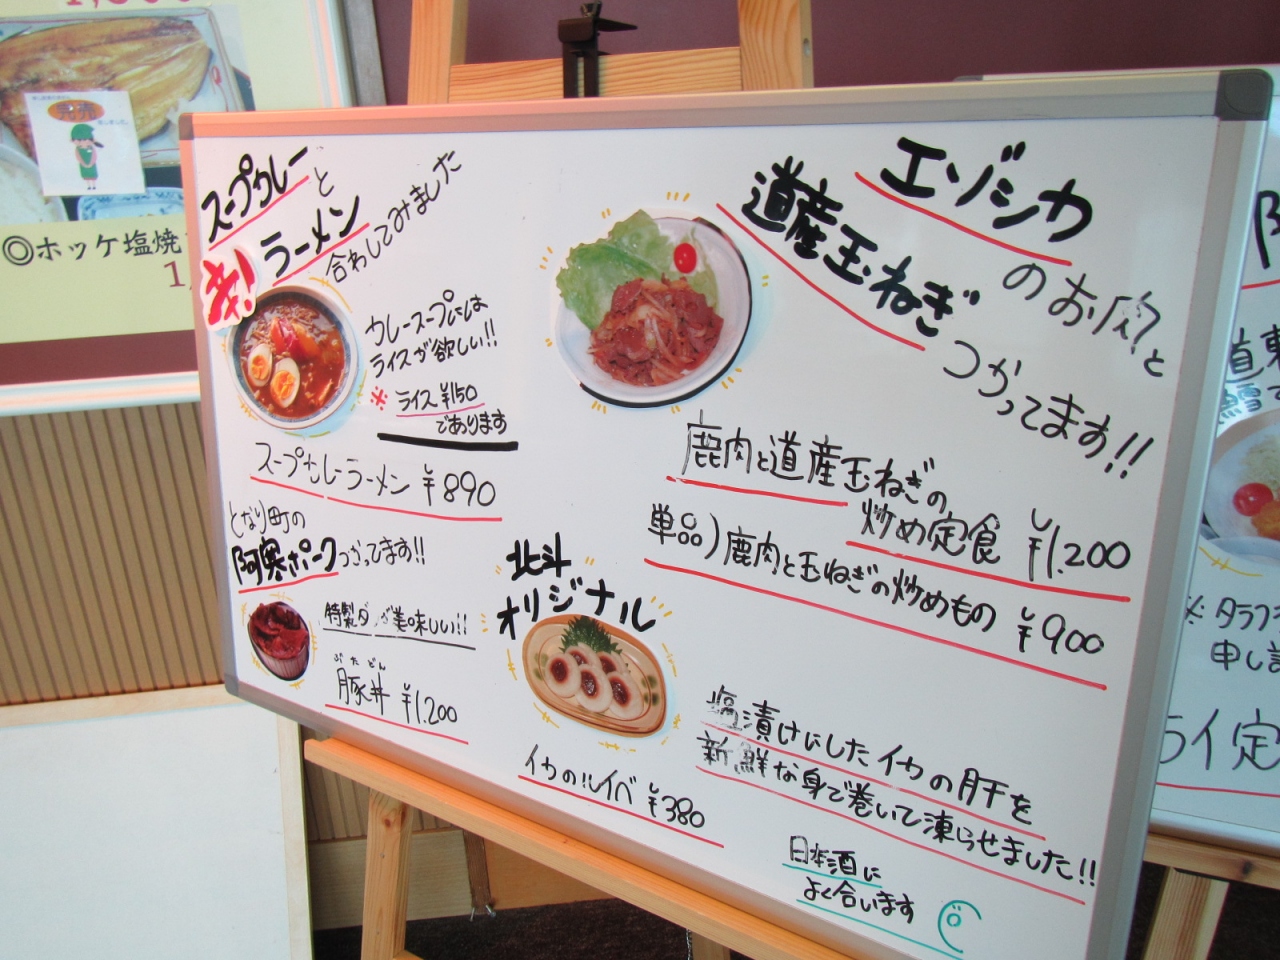 ◎ホッケ塩焼
完売
スープカレーと
ラーメン
合わしてみました
辛!
カレースープには
ライスが欲しい!!
※ライス¥150
であります
スープカレーラーメン ¥890
となり町の
阿寒ポークつかってます!!
特製ダレが美味しい!!
ぶたどん
豚丼 ¥1.200
エゾシカ
のお肉と
道産玉ねぎ
つかってます!!
鹿肉と道産玉ねぎの
炒め定食 ¥1.200
単品)鹿肉と玉ねぎの炒めもの ¥900
北斗
オリジナル
イカのルイベ ¥380
塩漬けにしたイカの肝を
新鮮な身で巻いて凍らせました!!
日本酒に
よく合います
道東
※タラフ
申し訳
ライ定